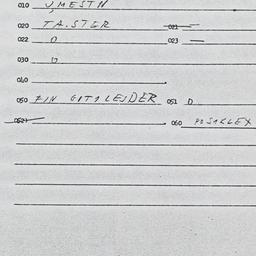 010 J, MESTN
020 TA.STER 021 —
022 0 023 —
030 0
040
050 FIN GOTALESDER 051 D
052 060 POSKLEX